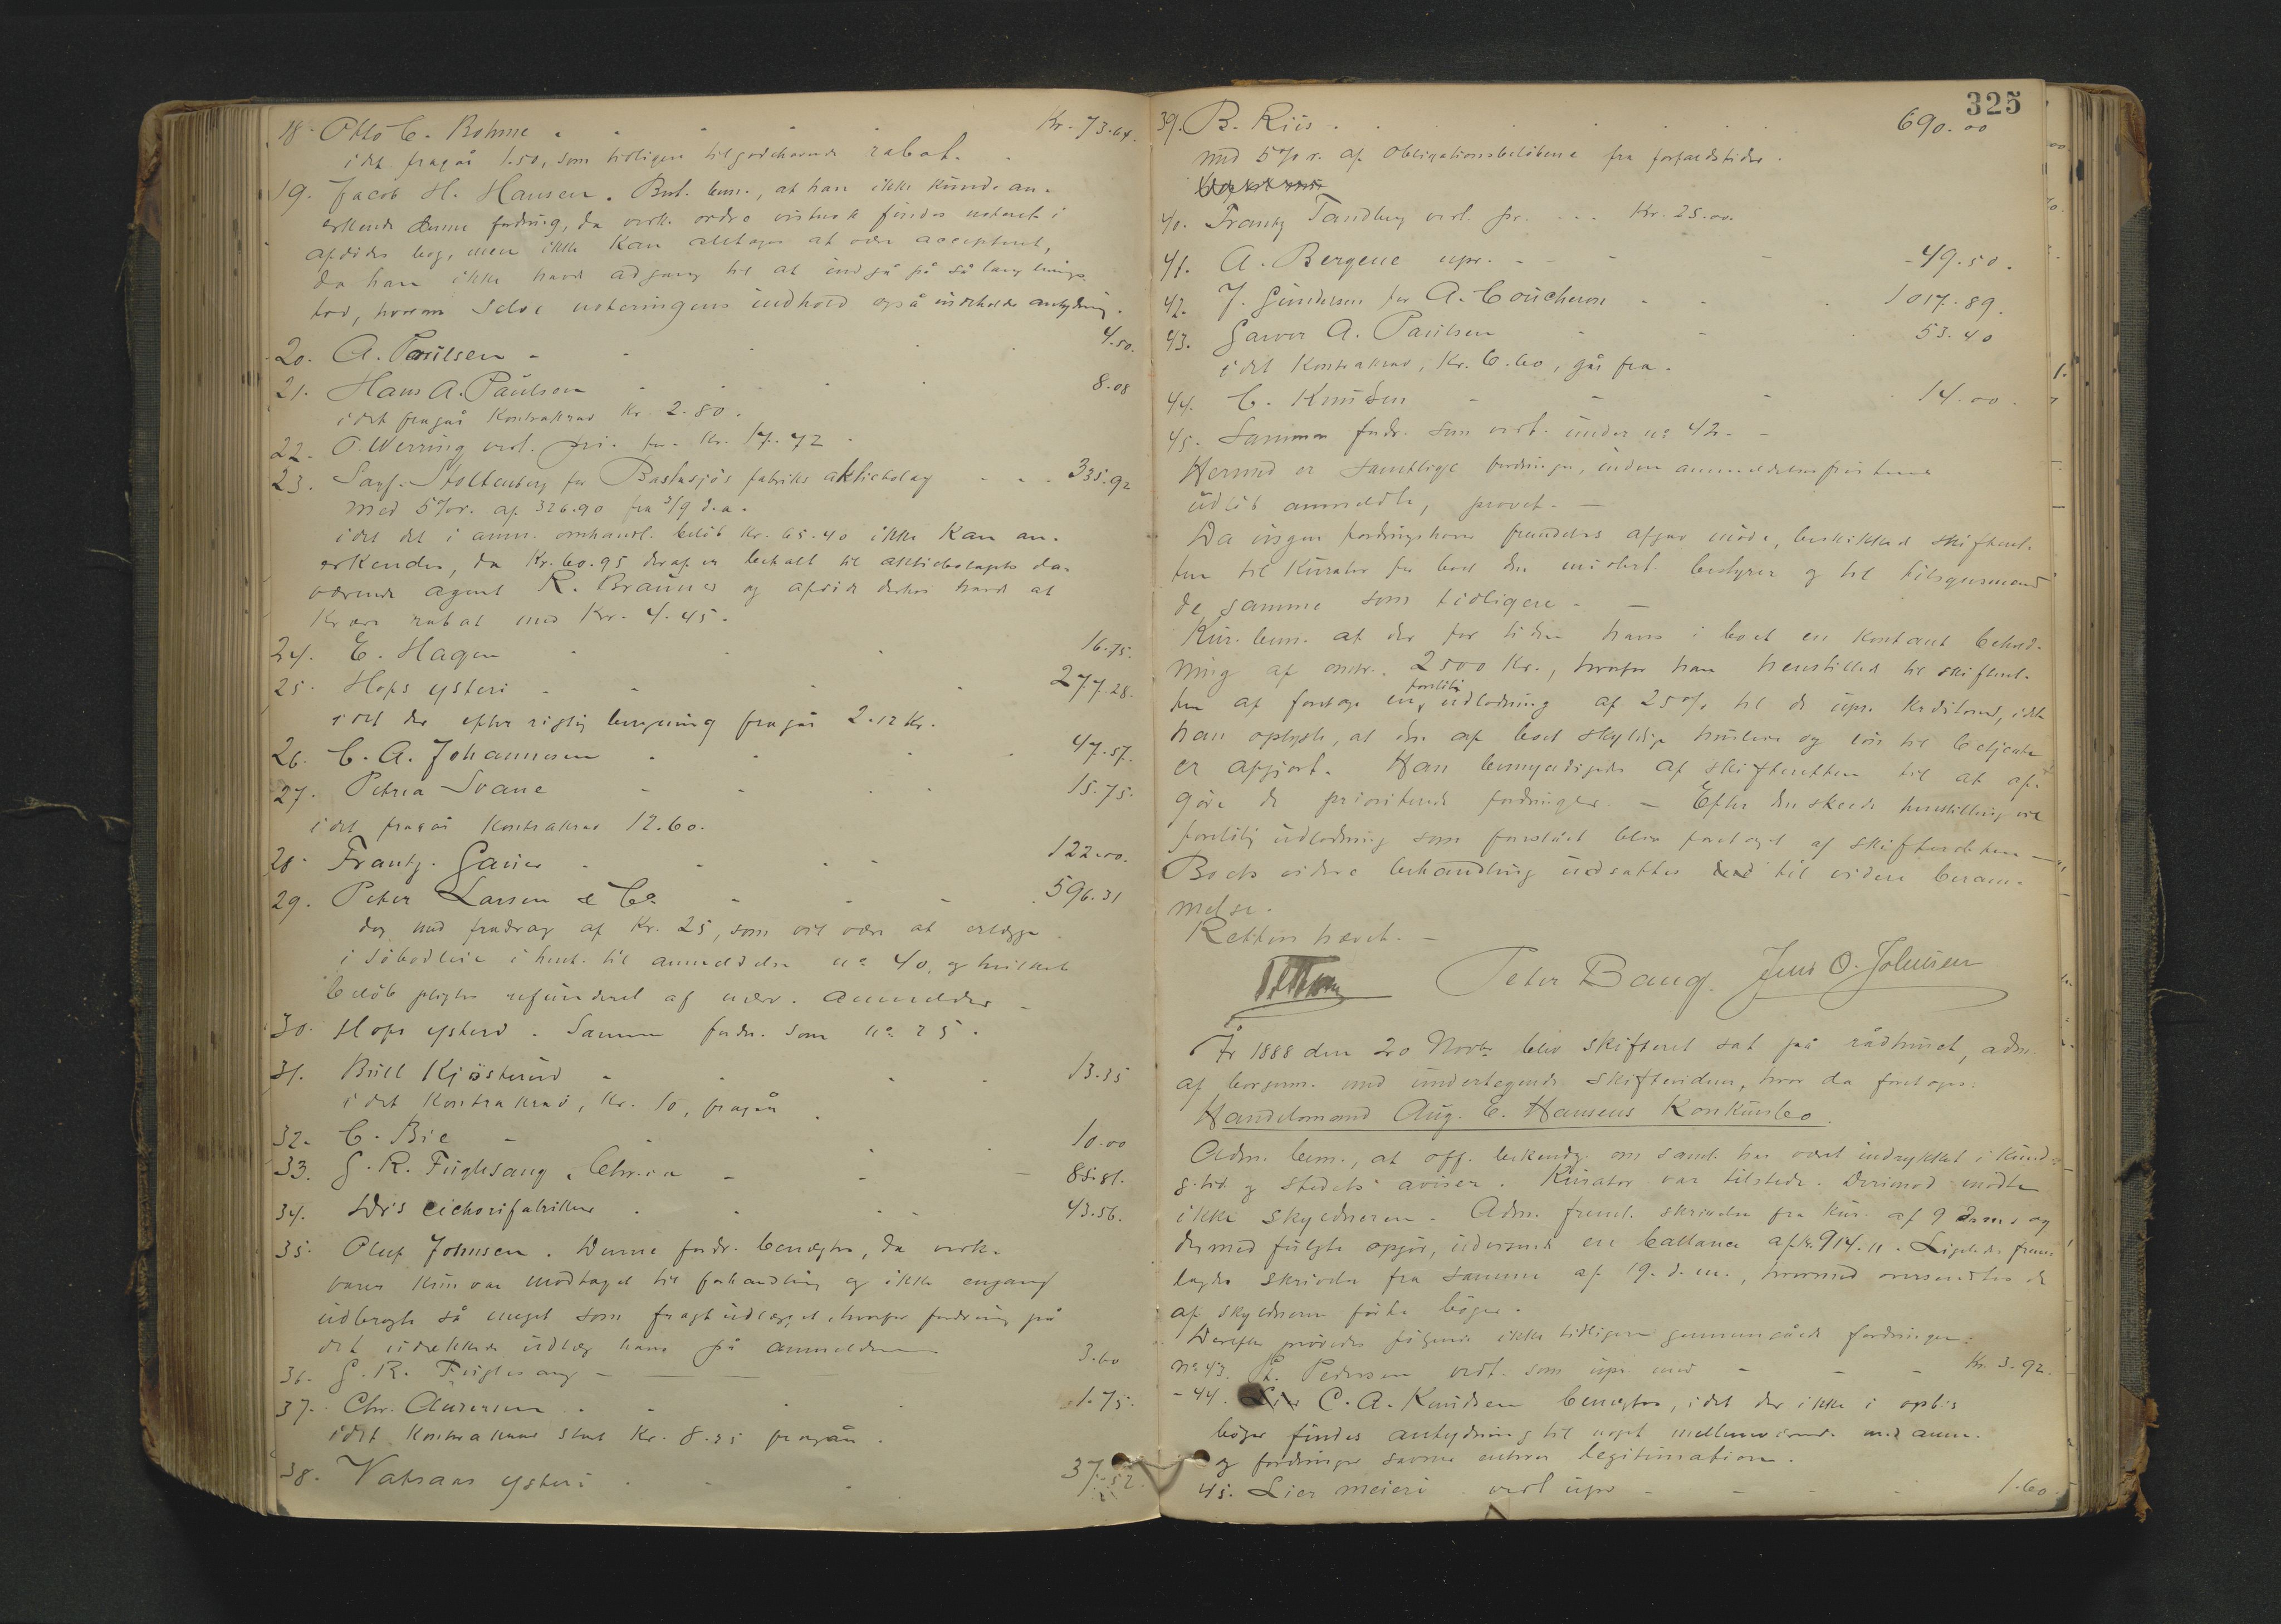 18. Otto C. Bohme . . . . . Kr. 73.64.
idet fragår 1.50, som tidligere tilgodehavende rabat.
19. Jacob H. Hansen. Best. bem., at han ikke kunde an-
erkende denne fordring, da verk. ordre findes noteret i
afdødes bog, men ikke kan antages at være accepteret,
da han ikke havde adgang til at indgå på så lang
tid, hvorom selve noteringens indhold også indeholder antydning.
20. A. Paulsen - 4.50.
21. Hans A. Paulsen 8.08
idet fragår Kontrakrav Kr. 2.80.
22. O. Werring vedt. pri. for Kr. 17.72
23. Sagf. Stoltenberg for Bastasjös fabriks aktiebolag - - - 335.92
med 5% r. af 326.90 fra 3/9 d.a.
idet det i anm. omhandl. beløb Kr. 65.40 ikke kan an-
erkendes, da Kr. 60.95 deraf er betalt til aktiebolagets da-
værende agent R. Brauner og afdøde derhos havde at
kræve rabat med Kr. 4.45.
24. E. Hagen 16.75.
25. Hofs ysteri - 277.28.
idet der efter rigtig beregning fragår 2.12 Kr.
26. C. A. Johannesen 47.57.
27. Petrea Svane 15.75.
idet fragår Kontrakrav 12.60.
28. Frantz. Garver 122.00.
29. Peter Larsen & Co. 596.31
dog med fradrag af Kr. 25, som vil være at erlægge
i henh. til anmeldelse no 40, og hvilket
beløb pligtes refunderet af nærv. anmelder -
30. Hofs ysteri. Samme fordr. som no 25.
31. Brill Kjösterud - 13.35
idet Kontrakrav, Kr. 10, fragår
32. C. Bie - 10.00
33. G. R. Fuglesang, Chr.ia - 85.81.
34. Wiis cichorifabrikker 43.56.
35. Oluf Johnsen. Denne fordr. benægtes, da verk.
varer kun var modtaget til forhandling og ikke engang
udbragte så meget som fragtudlægget, hvorfor fordring på
det udækkede udlæg haves på anmelderen
36. G. R. Fuglesang - 3.60
37. Chr. Andersen 1.75.
idet Kontrakrav stort Kr. 8.25 fragår.
38. Vatsaas ysteri 37.52.
325
39. B. Riis . . . . . 690.00
med 5% r. af obligationsbeløbene fra forfaldstider.
40. Frantz Tandberg vedt. pr. - - - Kr. 25.00.
41. A. Bergene upr. - - - 49.50.
42. J. Gundersen for A. Coucheron - 1017.89.
43. Garver A. Paulsen 53.40
idet Kontrakrav, Kr. 6.60, går fra.
44. C. Knudsen - 14.00.
45. Samme fordr. som vedt. under no 42. -
Hermed er samtlige fordringer, inden anmeldelsesfristens
udløb anmeldte, prøvet. -
Da ingen fordringshaver fremdeles afgav møde, beskikked skifteret-
ten til Kurator for boet den midlert. bestyrer og til tilsynsmænd
de samme som tidligere. -
Kur. bem. at der for tiden haves i boet en kontant behold-
ning af omtr. 2500 Kr., hvorfor han henstilled til skifteret-
ten at foretage en foreløbig udlodning af 25% til de upr. kreditorer, idet
han oplyste, at den af boet skyldige husleie og løn til betjente
er afgjort. Han bemyndigedes af skifteretten til at af-
gøre de prioriterede fordringer. - Efter den skede henstilling vil
foreløbig udlodning som forstået blive foretaget af skifteretten -
Boets videre behandling udsattes til videre beram-
melse.
Retten hævet. -
Peter Bang. Jens O. Johnsen
År 1888 den 20 Novbr blev skifteret sat på rådhuset, adm.
af borgerm. med undertegnede skiftevidner, hvor da foretoges:
Handelsmand Aug. E. Hansens Konkursbo.
Adm. bem., at off. bekendtg. om saml. har været indrykket i kund-
g. tid. og stedets aviser. Kurator var tilstede. Derimod mødte
ikke skyldneren. Adm. freml. skrivelse fra Kur. af 9 dennes og
dermed fulgte opgør, udvisende en ballance af Kr. 914.11. Ligeledes frem-
lagdes skrivelse fra samme af 19. d. m., hvormed oversendtes de
af skyldneren førte bøger.
Derefter prøvedes følgende ikke tidligere gennemgåede fordringer:
No 43. P. Pedersen vedt. som upr. med - - - Kr. 3.92.
- 44. C. A. Knudsen benægtes, idet der ikke i opb.s
bøger findes antydning til noget mellemværende med anm.
og fordringen savner enhver legitimation.
45. Lier meieri vedt upr - - - 1.60.